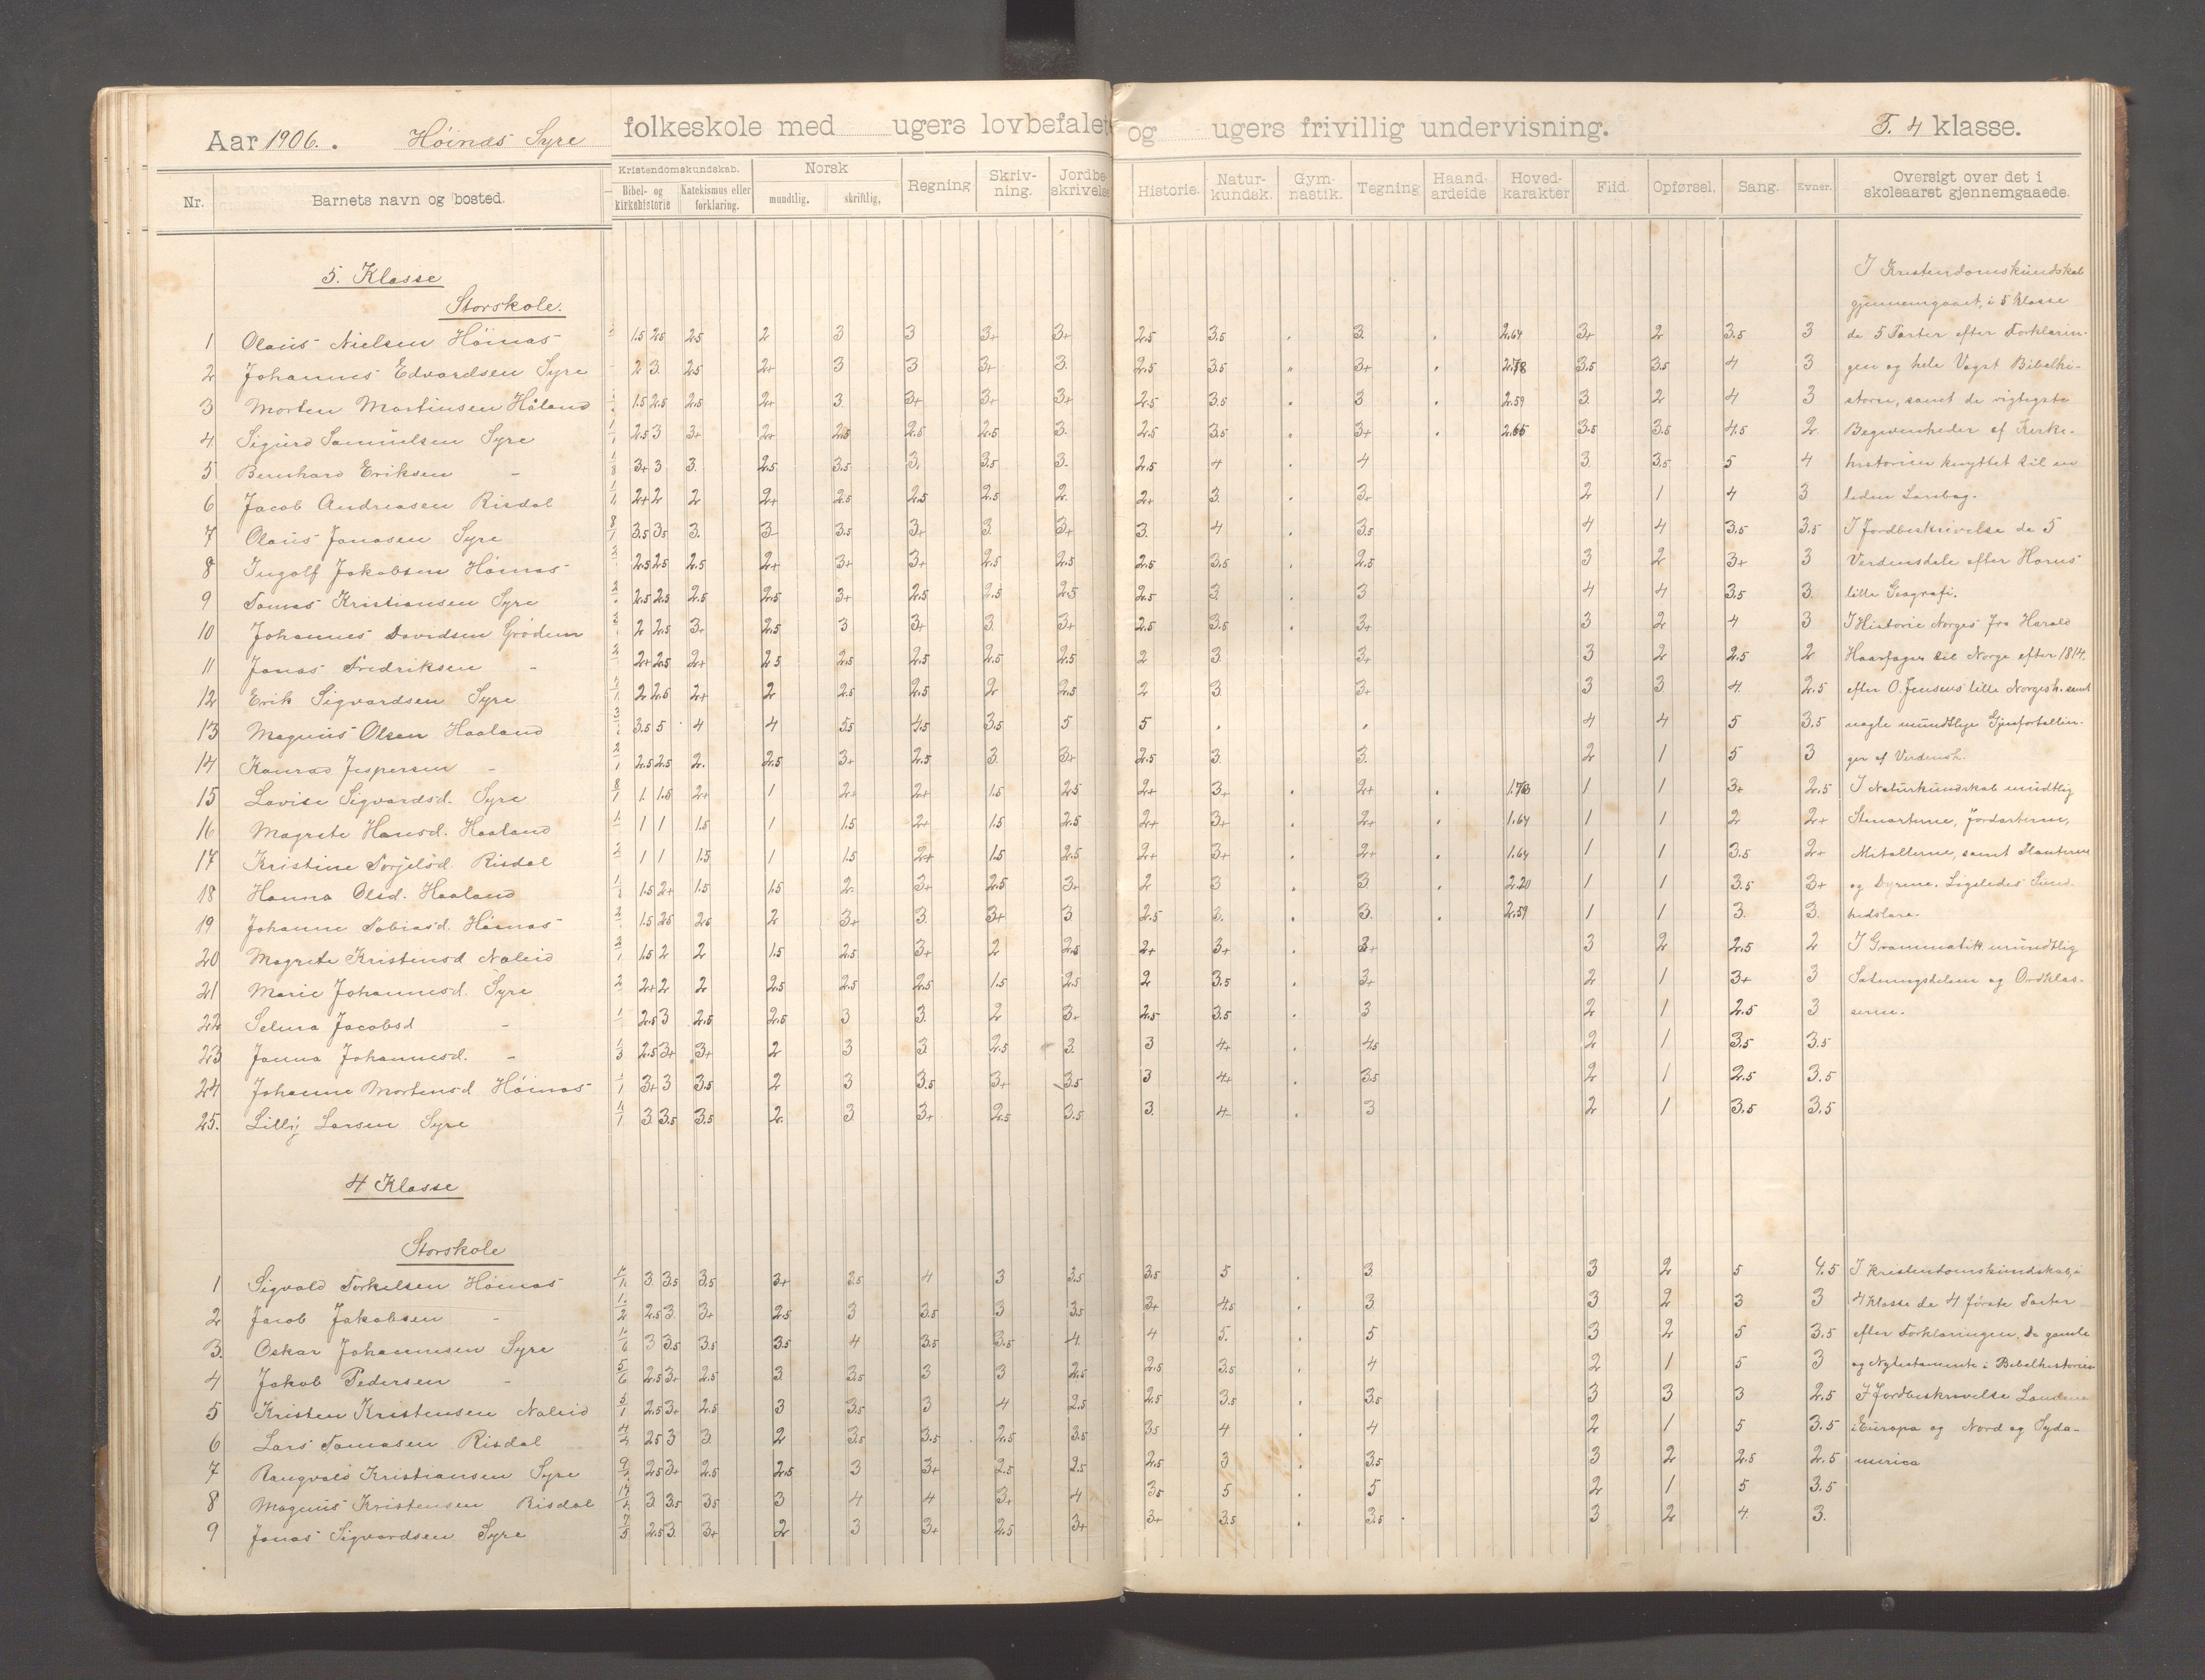 Aar 1906. Høinæs Syre folkeskole med ugers lovbefalet og ugers frivillig undervisning. 5. 4 klasse.
Nr. Barnets navn og bosted. Kristendomskundskab. Bibel- og kirkehistorie Katekismus eller forklaring. Norsk mundtlig, skriftlig, Regning Skriv-ning. Jordbe-skrivelse Historie. Natur-kundsk. Gym-nastik. Tegning Haand-arbeide Hoved-karakter Flid. Opførsel. Sang. Evner. Oversigt over det i skoleaaret gjennemgaaede.
5. Klasse I Kristendomskundskab
Storskole. gjennemgaaet, i 5 klasse
1 Olaus Nielsen Høinæs 1.5 2.5 2.5 2 3 3 3+ 3+ 2.5 3.5 3. 2.64 3+ 2 3.5 3 de 5 Parter efter Forklarin-
2 Johannes Edvardsen Syre 2 3. 2.5 2+ 3 3 3+ 3. 2.5 3.5 " 3+ 2.78 3.5 3.5 4 3 gen og hele Vogt Bibelhi-
3 Morten Martinsen Håland 1.5 2.5 2.5 2+ 3. 3+ 3+ 3+ 2.5 3.5 3 2.59 3. 2 4 3 storie, samt de vigtigste
4. Sigurd Samuelsen Syre 1/1 2.5 3 3+ 2+ 2.5 2.5 2.5 3. 2.5 3.5 3+ 2.65 3.5 3.5 4.5 2 Begivenheder af Kirke-
5 Bernhard Eriksen - 1/8 3+ 3 3. 2.5 3.5 3. 3.5 3. 2.5 4 4 3. 3.5 5 4 historien knyttet til en
6 Jacob Andreasen Risdal 1/1 2+ 2 2 2+ 2.5 2.5 2.5 2. 2+ 3. 3+ 2 1 4 3 liden Lærebog.
7 Olaus Jonasen Syre 8/1 3.5 3.5 3. 3- 3.5 3+ 3. 3+ 3. 4 3.5 4 4 3.5 3.5 I Jordbeskrivelse de 5
8 Ingolf Jakobsen Høinæs 2.5 2.5 2.5 2+ 3+ 3+ 2.5 2.5 2.5 3.5 2.5 3 2 3+ 3 Verdensdele efter Horns
9 Tomas Kristiansen Syre 2.5 2.5 2.5 2.5 3+ 2.5 2.5 2.5 2.5 3 3 4 4 3.5 3. lille Geografi.
10 Johannes Davidsen Grødem 2 2.5 3+ 2.5 3 3+ 3. 3+ 2.5 3.5 3+ 3 2 4 3 I Historie Norges fra Harald
11 Jonas Fredriksen - 2+ 2.5 2+ 2.5 2.5 2.5 2.5 2.5 2 3. 3+ 3 2 2.5 2 Haarfager til Norge efter 1814.
12 Erik Sigvardsen Syre 2 2.5 2+ 2 2.5 2.5 2 2.5 2 3. 3+ 3 3 4. 2.5 efter O. Jensens lille Norgesh. samt
13 Magnus Olsen Haaland 3.5 5 4 4 5.5 4.5 3.5 5 5 . . 4 4 5 3.5 nogle mundtlige Gjenfortællin-
14 Konrad Jespersen - 2/1 2.5 2.5 2. 2.5 3+ 2.5 3. 3+ 2.5 3. 3. 2 1 5 3 ger af Verdensh.
15 Lovise Sigvardsd. Syre 8/1 1. 1.5 2+ 1 2+ 2+ 1.5 2.5 2+ 3+ 2+ 1.73 1 1 3+ 2.5 I Naturkundskab mundtlig
16 Magrete Hansd. Haaland 1 1 1.5 1 1.5 2+ 1.5 2.5 2+ 3+ 2+ 1.64 1 1 2 2+ Stenarterne, Jordarterne,
17 Kristine Torjelsd. Risdal 1 1 1.5 1 1.5 2+ 1.5 2.5 2+ 3+ 2+ 1.64 1 1 3.5 2+ Metallerne, samt Planterne
18 Hanna Olsd. Haaland 1.5 2+ 1.5 1.5 2. 3+ 2.5 3+ 2 3 3. 2.20 1 1 3.5 3+ og Dyrene. Ligeledes Sund-
19 Johanne Tobiasd. Høinæs 1.5 2.5 2.5 2 3+ 3. 3+ 3 2.5 3. 3. 2.59 1 1 3. 3. hedslære.
20 Magrete Kristensd Naleid 1.5 2 2 1.5 2.5 3+ 2 2.5 2+ 3+ 3+ 3 2 2.5 2 I Grammatik mundtlig
21 Marie Johannesd. Syre 2+ 2 2 2.5 2.5 2.5 1.5 2.5 2 3.5 3+ 2 1 3+ 3 Sætningsdelene og Ordklas-
22 Selma Jacobsd - 2.5 3 2.5 2.5 3 3. 2 3+ 2.5 3.5 3 2 1 2.5 3 serne.
23 Janna Johannesd. - 1/3 2.5 3+ 3+ 2 3 3. 2.5 3. 3 4+ 4.5 2 1 3.5 3.5
24 Johanne Mortensd Høinæs 1/1 3+ 3 3.5 2 3 3.5 3+ 3.5 3 4+ 3.5 2 1 2.5 3.5
25. Lilly Larsen Syre 3 3.5 3.5 2. 3 3+ 2.5 3.5 3. 4 3 2 1 3.5 3.5
4 Klasse
Storskole
1 Sigvald Torkelsen Høinæs 3. 3.5 3.5 3+ 3.5 4 3 3.5 3.5 5 3. 3 2 5 4.5 I kristendomskundskab, i
2 Jacob Jakobsen - 1/2 2.5 3. 3+ 2.5 3 3.5 3 3.5 3+ 4.5 3 3 2 3 3 4 klasse de 4 første Parter
3. Oskar Johannesen Syre 1/6 3 3.5 3.5 3.5 4 3.5 3.5 4. 4 5. 5 3 2 5 3.5 efter Forklaringen. De gamle
4 Jakob Pedersen - 5/6 2.5 3+ 2.5 3. 3.5 3 3 2.5 2.5 3.5 4 2 1 5 3 og Nytestamente i Bibelhistorien
5 Kristen Kristensen Naleid 5/1 2.5 3+ 2.5 3 3.5 3 4 2.5 2.5 3.5 3.5 3 3 3 2.5 I Jordbeskrivelse Landene
6 Lars Tomasen Risdal 2.5 3 3. 2 3.5 3.5 2.5 3.5 3.5 4 4 2 1 5 3.5 i Europa og Nord og Syda-
7 Rangvald Kristiansen Syre 2.5 3+ 2.5 2.5 3 3+ 2.5 2.5 2.5 3 3.5 3 2 2.5 2.5 merica
8 Magnus Kristensen Risdal 3. 3.5 3.5 3 4 4 3+ 4 3.5 5 5 2 1 5 3.5
9 Jonas Sigvardsen Syre 7/5 2.5 3. 3+ 2 3 3+ 2.5 3+ 3+ 3.5 3.5 3 2 4. 3.